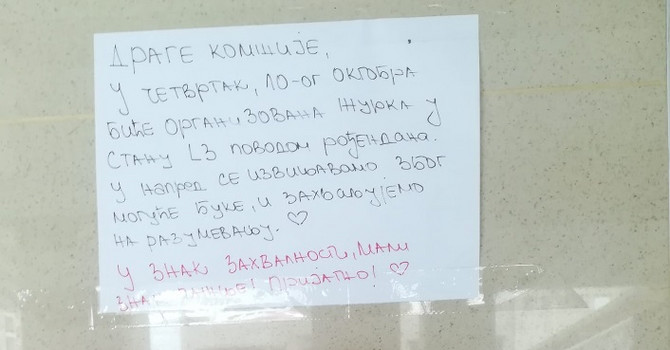 ДРАГЕ КОМШИЈЕ,
У ЧЕТВРТАК, 10-ОГ ОКТОБРА
БИЋЕ ОРГАНИЗОВАНА ЖУРКА У
СТАНУ L3 ПОВОДОМ РОЂЕНДАНА.
У НАПРЕД СЕ ИЗВИЊАВАМО ЗБОГ
МОГУЋЕ БУКЕ, И ЗАХВАЉУЈЕМО
НА РАЗУМЕВАЊУ. ♡
У ЗНАК ЗАХВАЛНОСТИ, МАЛИ
ПРИЈАТНО! ♡